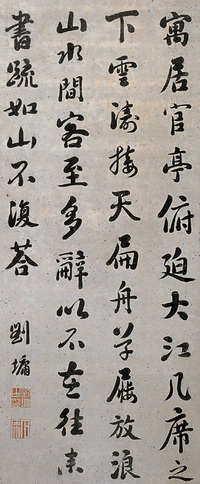 寓居官亭俯迫大江几席之
下雲濤接天扁舟草屨放浪
山水間客至多辭以不在往来
書疏如山不復荅
劉墉